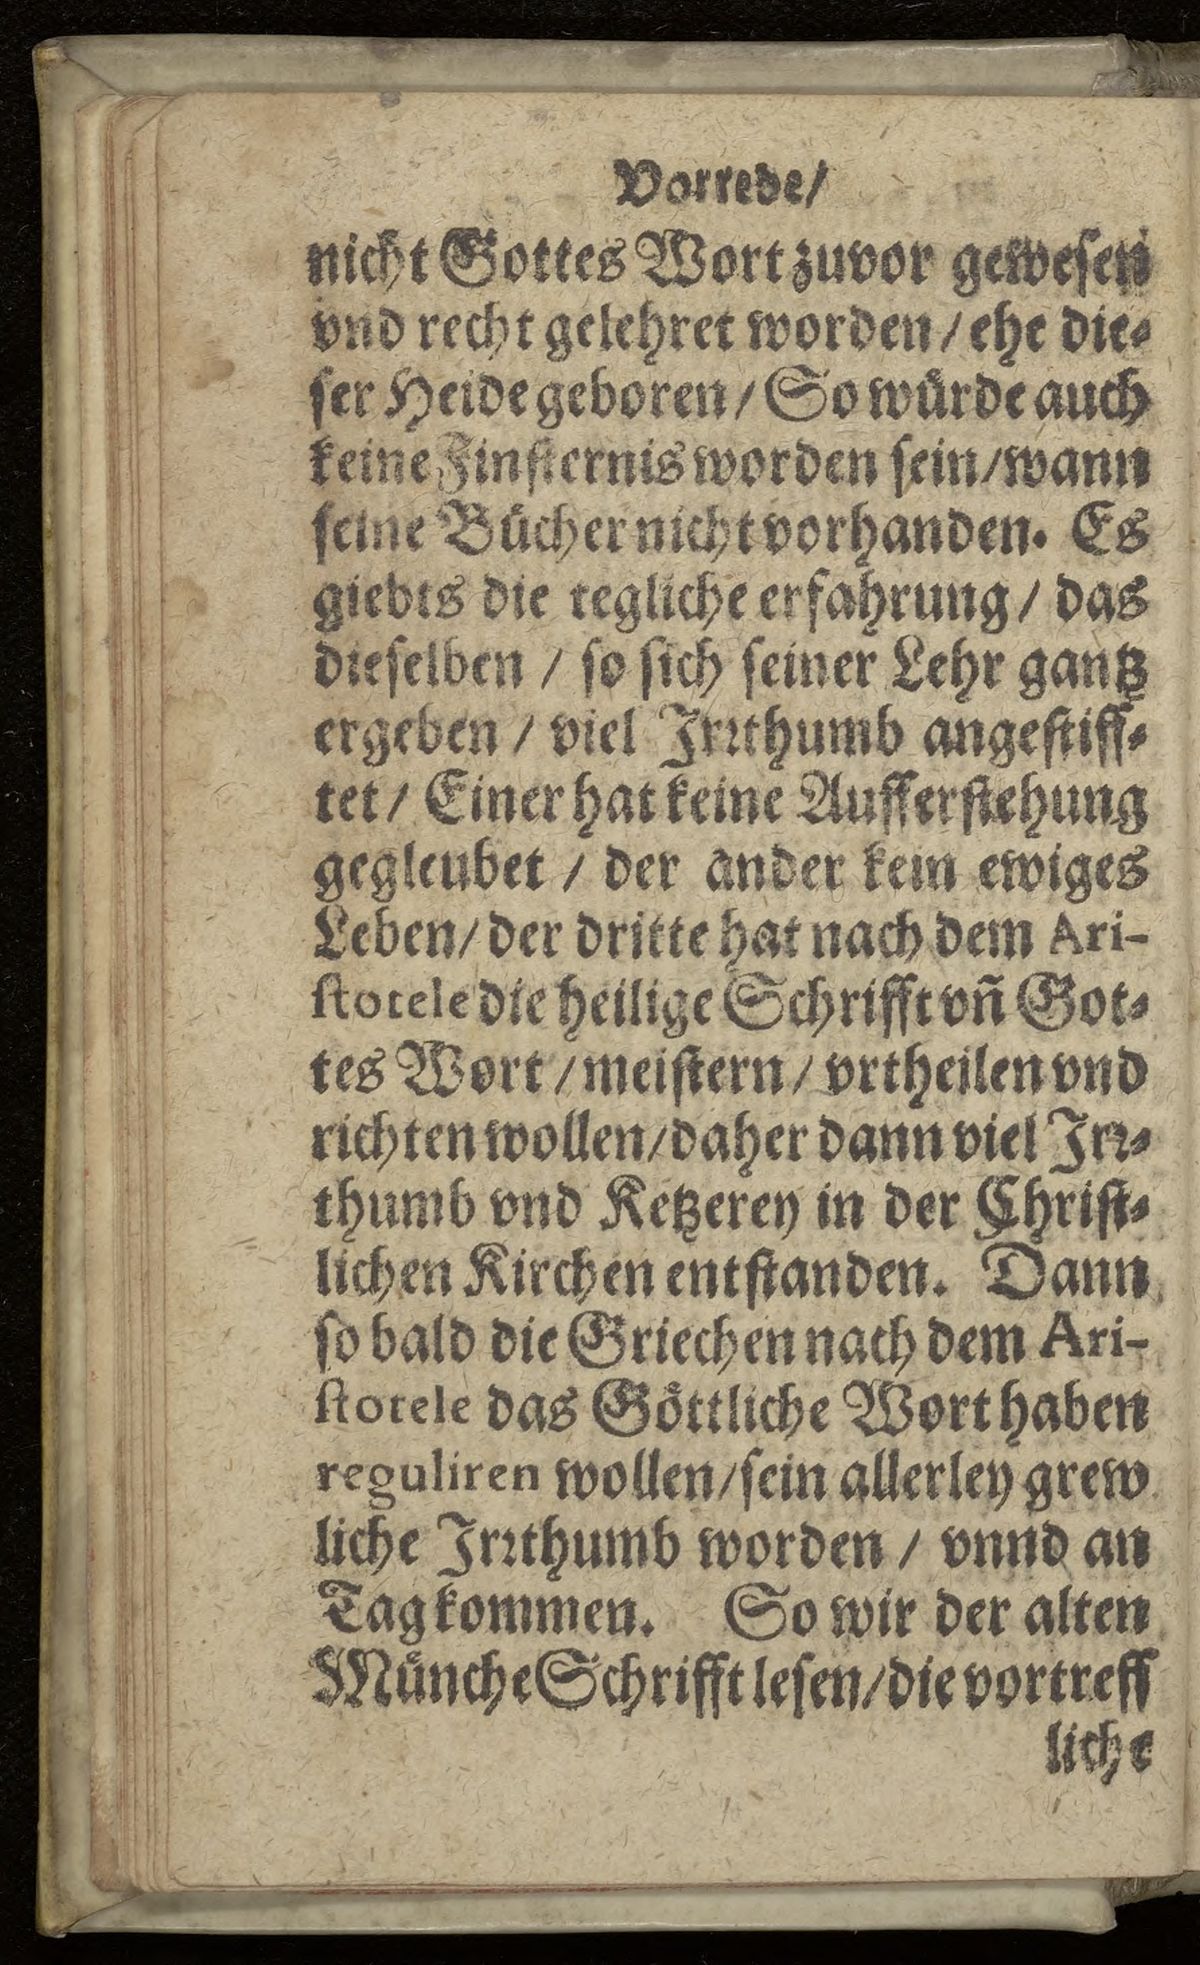 Vorrede/
nicht Gottes Wort zuvor gewesen
vnd recht gelehret worden / ehe die-
ser Heide geboren / So würde auch
keine Finsternis worden sein / wann
seine Bücher nicht vorhanden. Es
giebts die tegliche erfahrung / das
dieselben / so sich seiner Lehr gantz
ergeben / viel Irrthumb angestiff-
tet / Einer hat keine Aufferstehung
gegleubet / der ander kein ewiges
Leben / der dritte hat nach dem Ari-
stotele die heilige Schrifft vñ Got-
tes Wort / meistern / vrtheilen vnd
richten wollen / daher dann viel Irr-
thumb vnd Ketzerey in der Christ-
lichen Kirchen entstanden. Dann
so bald die Griechen nach dem Ari-
stotele das Göttliche Wort haben
reguliren wollen / sein allerley grew
liche Irrthumb worden / vnnd an
Tag kommen. So wir der alten
Münche Schrifft lesen / die vortreff
liche